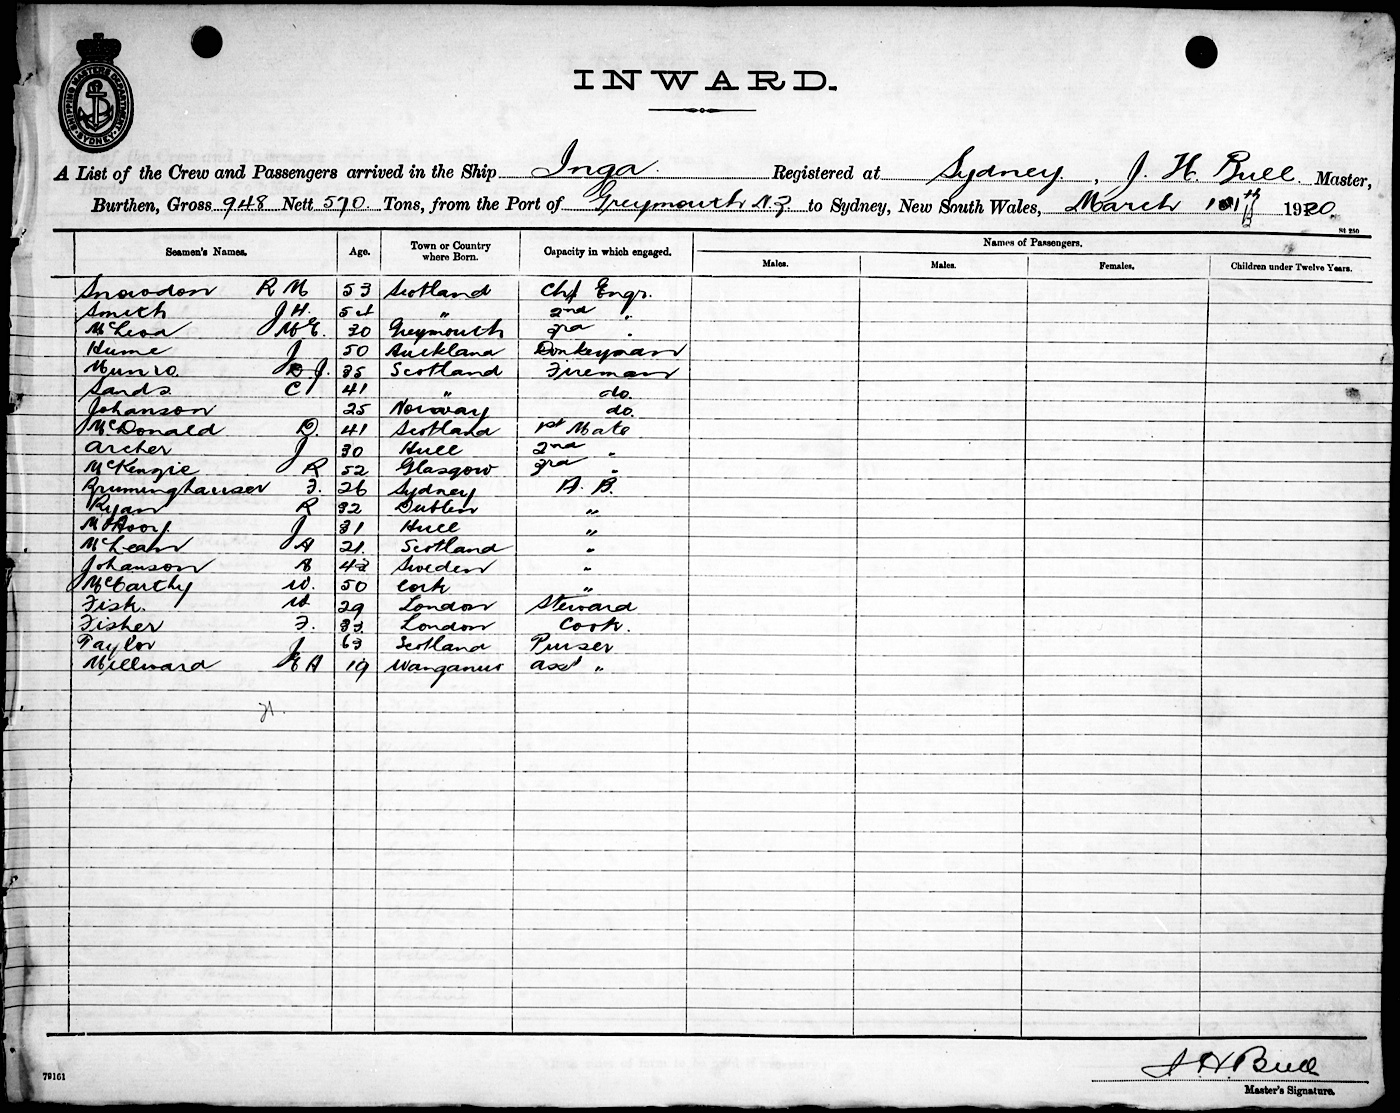 SHIPPING MASTERS DEPARTMENT SYDNEY
INWARD.
A List of the Crew and Passengers arrived in the Ship Inga Registered at Sydney, J. H. Bull. Master,
Burthen, Gross 948 Nett 570. Tons, from the Port of Greymouth N.Z to Sydney, New South Wales, March 1920.
St 250
Seamen's Names. Age. Town or Country where Born. Capacity in which engaged. Names of Passengers.
Males. Males. Females. Children under Twelve Years.
Snowdon R M 53 Scotland Chf Engr.
Smith J H. 54 " 2nd "
McLeod 30 Greymouth 3rd "
Hume J 50 Auckland Donkeyman
Munro D J. 35 Scotland Fireman
Sands C 41 " do.
Johanson 25 Norway do.
McDonald D. 41 Scotland 1st Mate
Archer J 30 Hull 2nd "
McKenzie R 52 Glasgow 3rd "
Bruminghauser F. 26 Sydney A. B.
Ryan R 32 Dublin "
J 31 Hull "
McLean A 21. Scotland "
Johanson A 43 Sweden "
McCarthy W. 50 Cork "
Fisk. W 29 London Steward
Fisher F. 33 London Cook.
Taylor J 63 Scotland Purser
Millward E A 19 Wanganui asst "
21.
J. H. Bull
Master's Signature.
79161